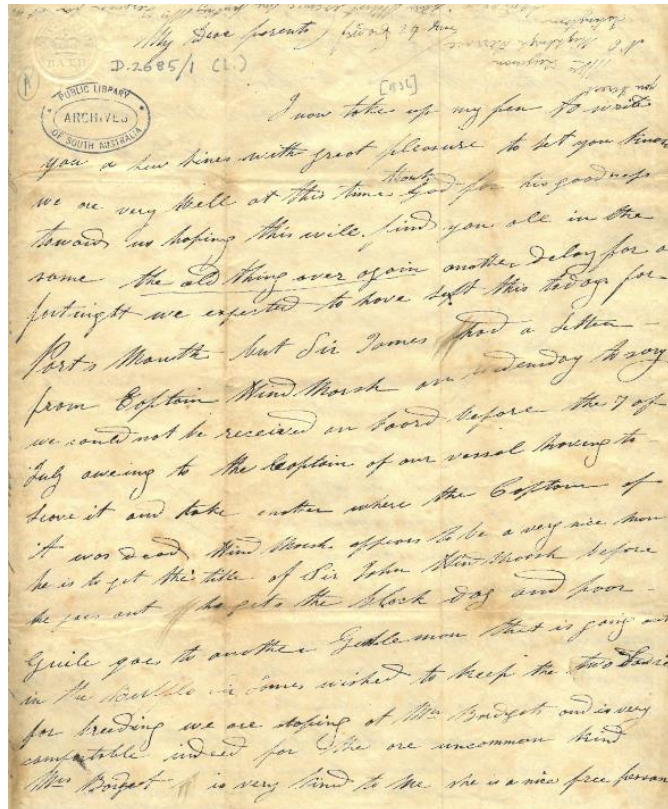 My Dear parents friday 24 June
D.2685/1 (L.)
[1836]
PUBLIC LIBRARY
ARCHIVES
OF SOUTH AUSTRALIA
BATH
I now take up my pen to write
you a few lines with great pleasure to let you know
we are very Well at this time thanks God for his goodness
towards us hoping this will find you all in the
same the old thing over again another delay for a
fortnight we expected to have left this today for
Ports Mouth but Sir James had a letter
from Captain Hind Marsh on wedensday to say
we could not be received on board before the 7 of
July oweing to the Captain of our vessal having to
leave it and take another where the Captain of
it was dead Hind Marsh appears to be a very nice man
he is to get the title of Sir John Hind Marsh before
he goes out he gets the black dog and poor
Guile goes to another Gentlemon that is going out
in the Buffalo Sir James wished to keep the two
for breeding we are stoping at Mrs and is very
comfortable indeed for the are uncommon kind
Mrs is very kind to me she is a nice free person